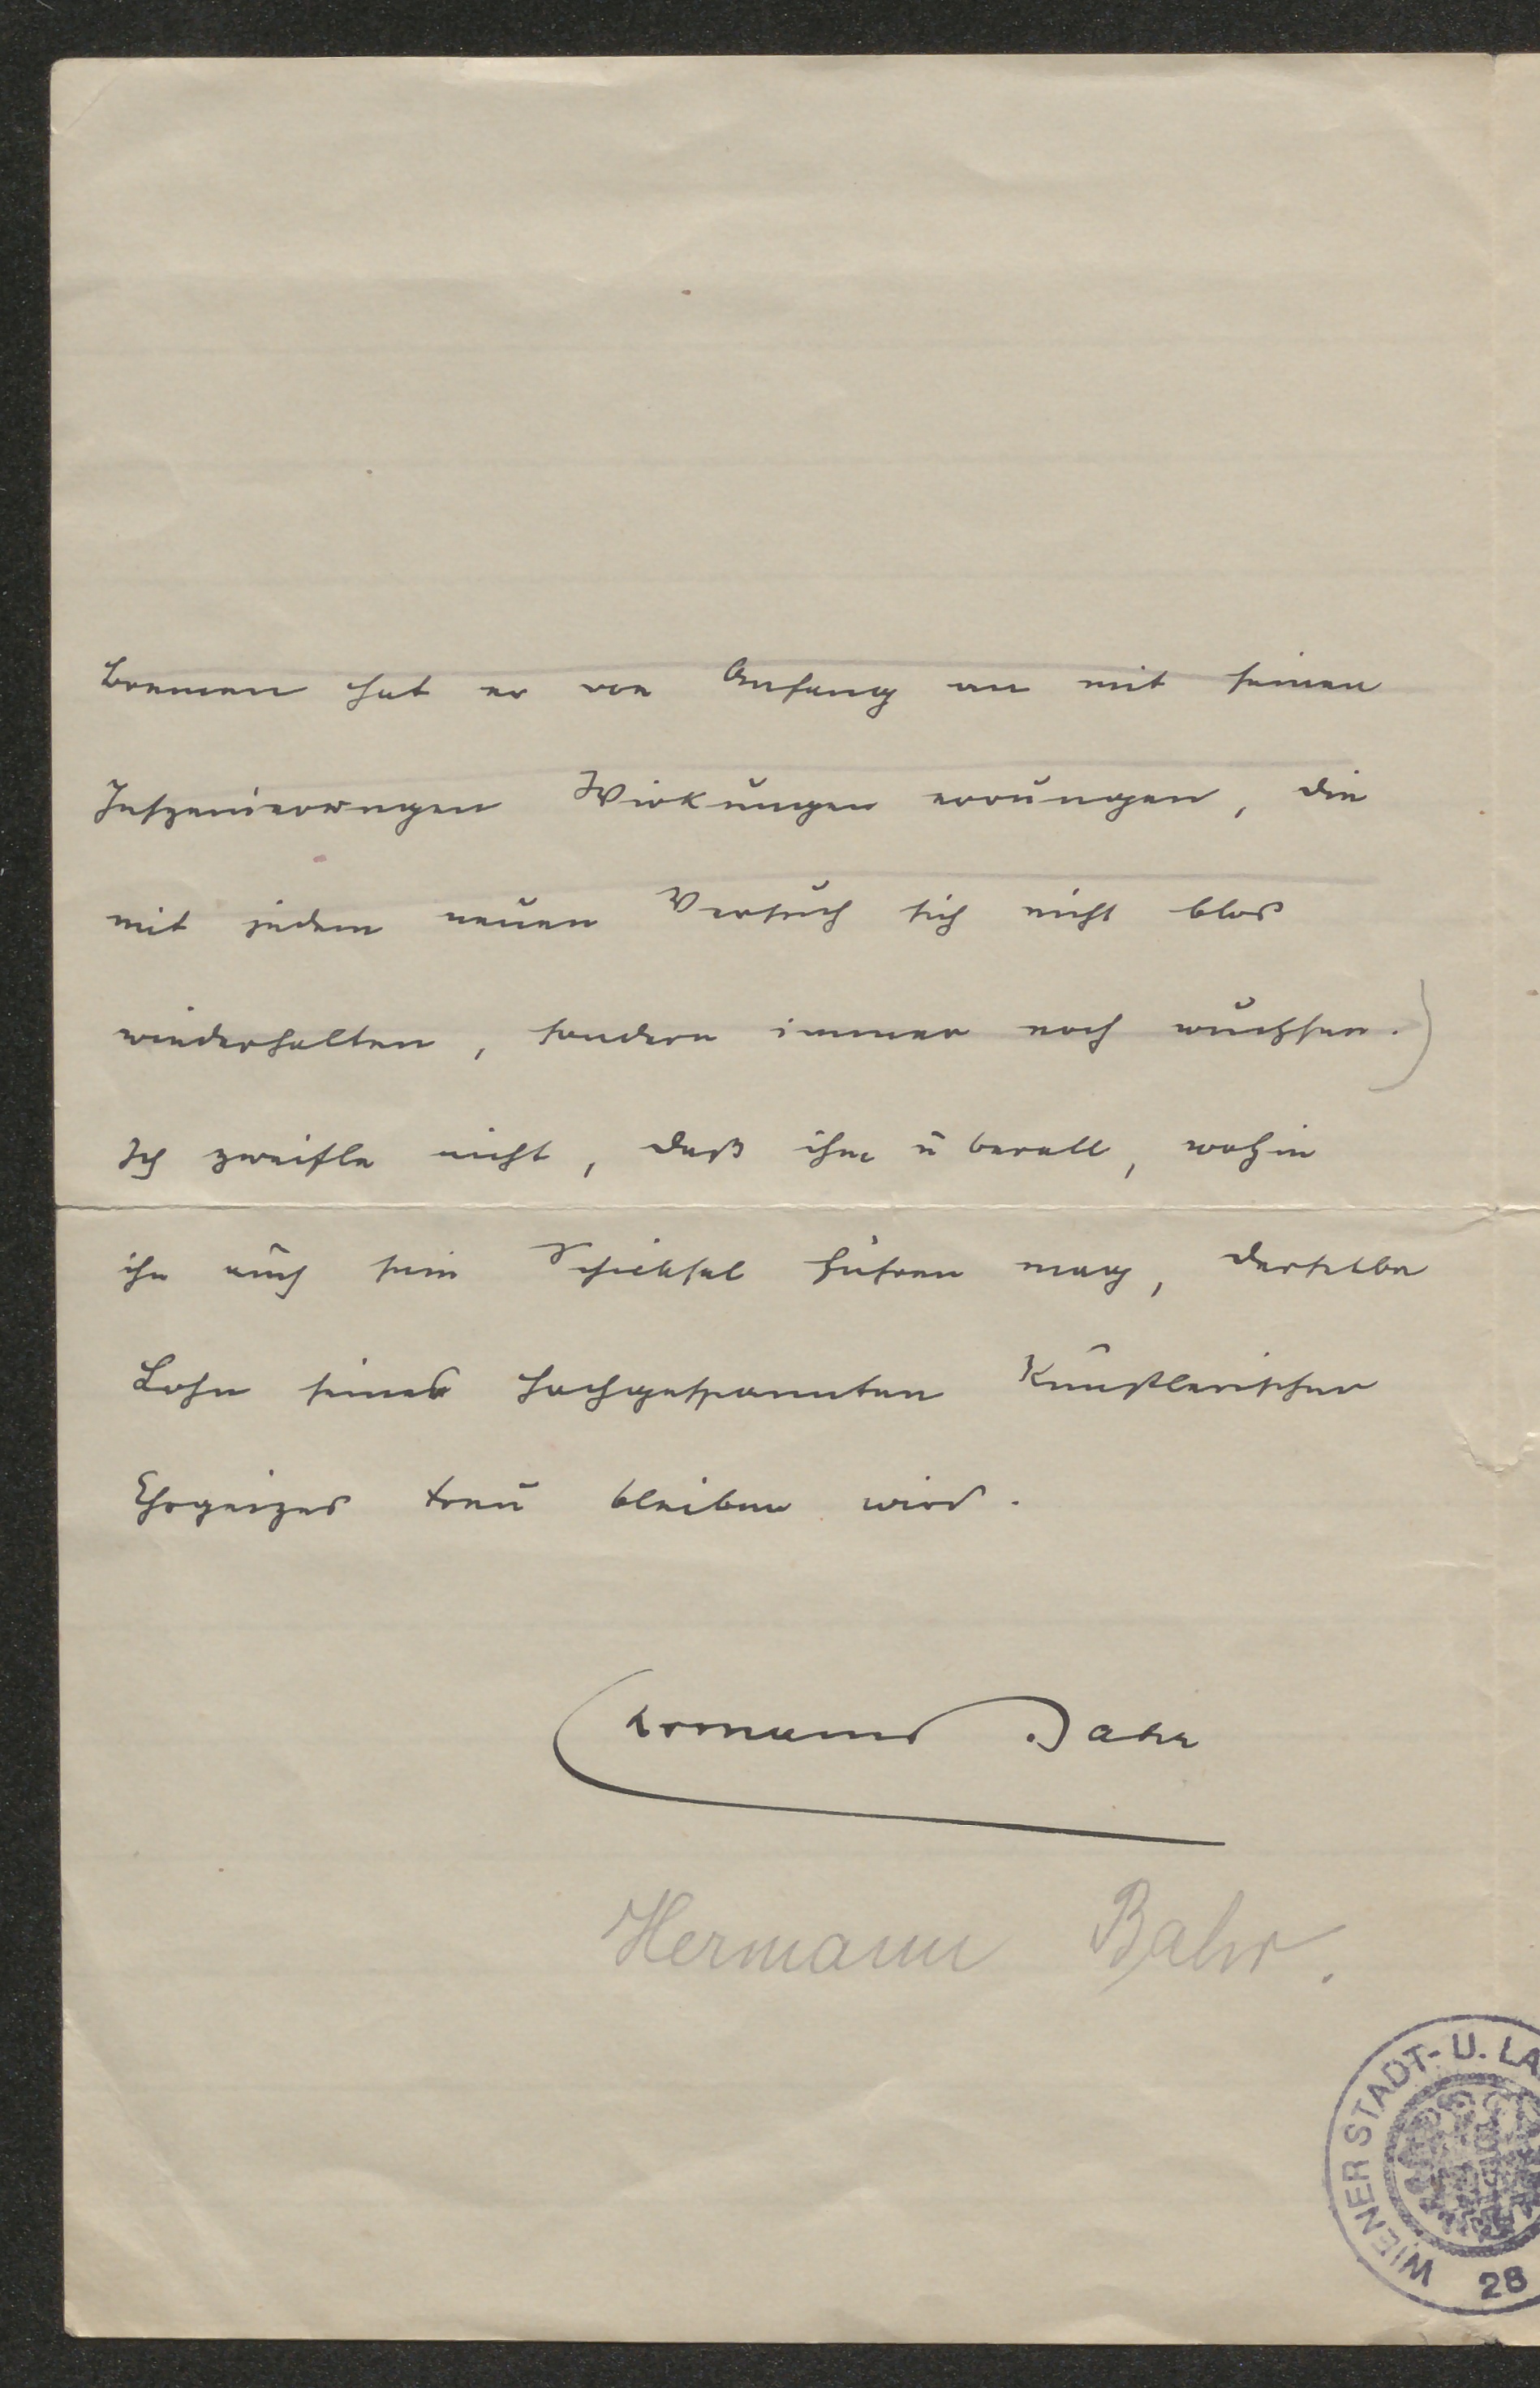 Bremen hat er von Anfang an mit seinen
Inszenierungen Wirkungen errungen, die
mit jedem neuen Versuch sich nicht blos
wiederholten, sondern immer noch wuchsen.)
Ich zweifle nicht, daß ihm überall, wohin
ihn auch sein Schicksal führen mag, derselbe
Lohn seines hochgespannten künstlerischen
Ehrgeizes treu bleiben wird.
Hermann Bahr
Hermann Bahr.
WIENER STADT- U. LA
28